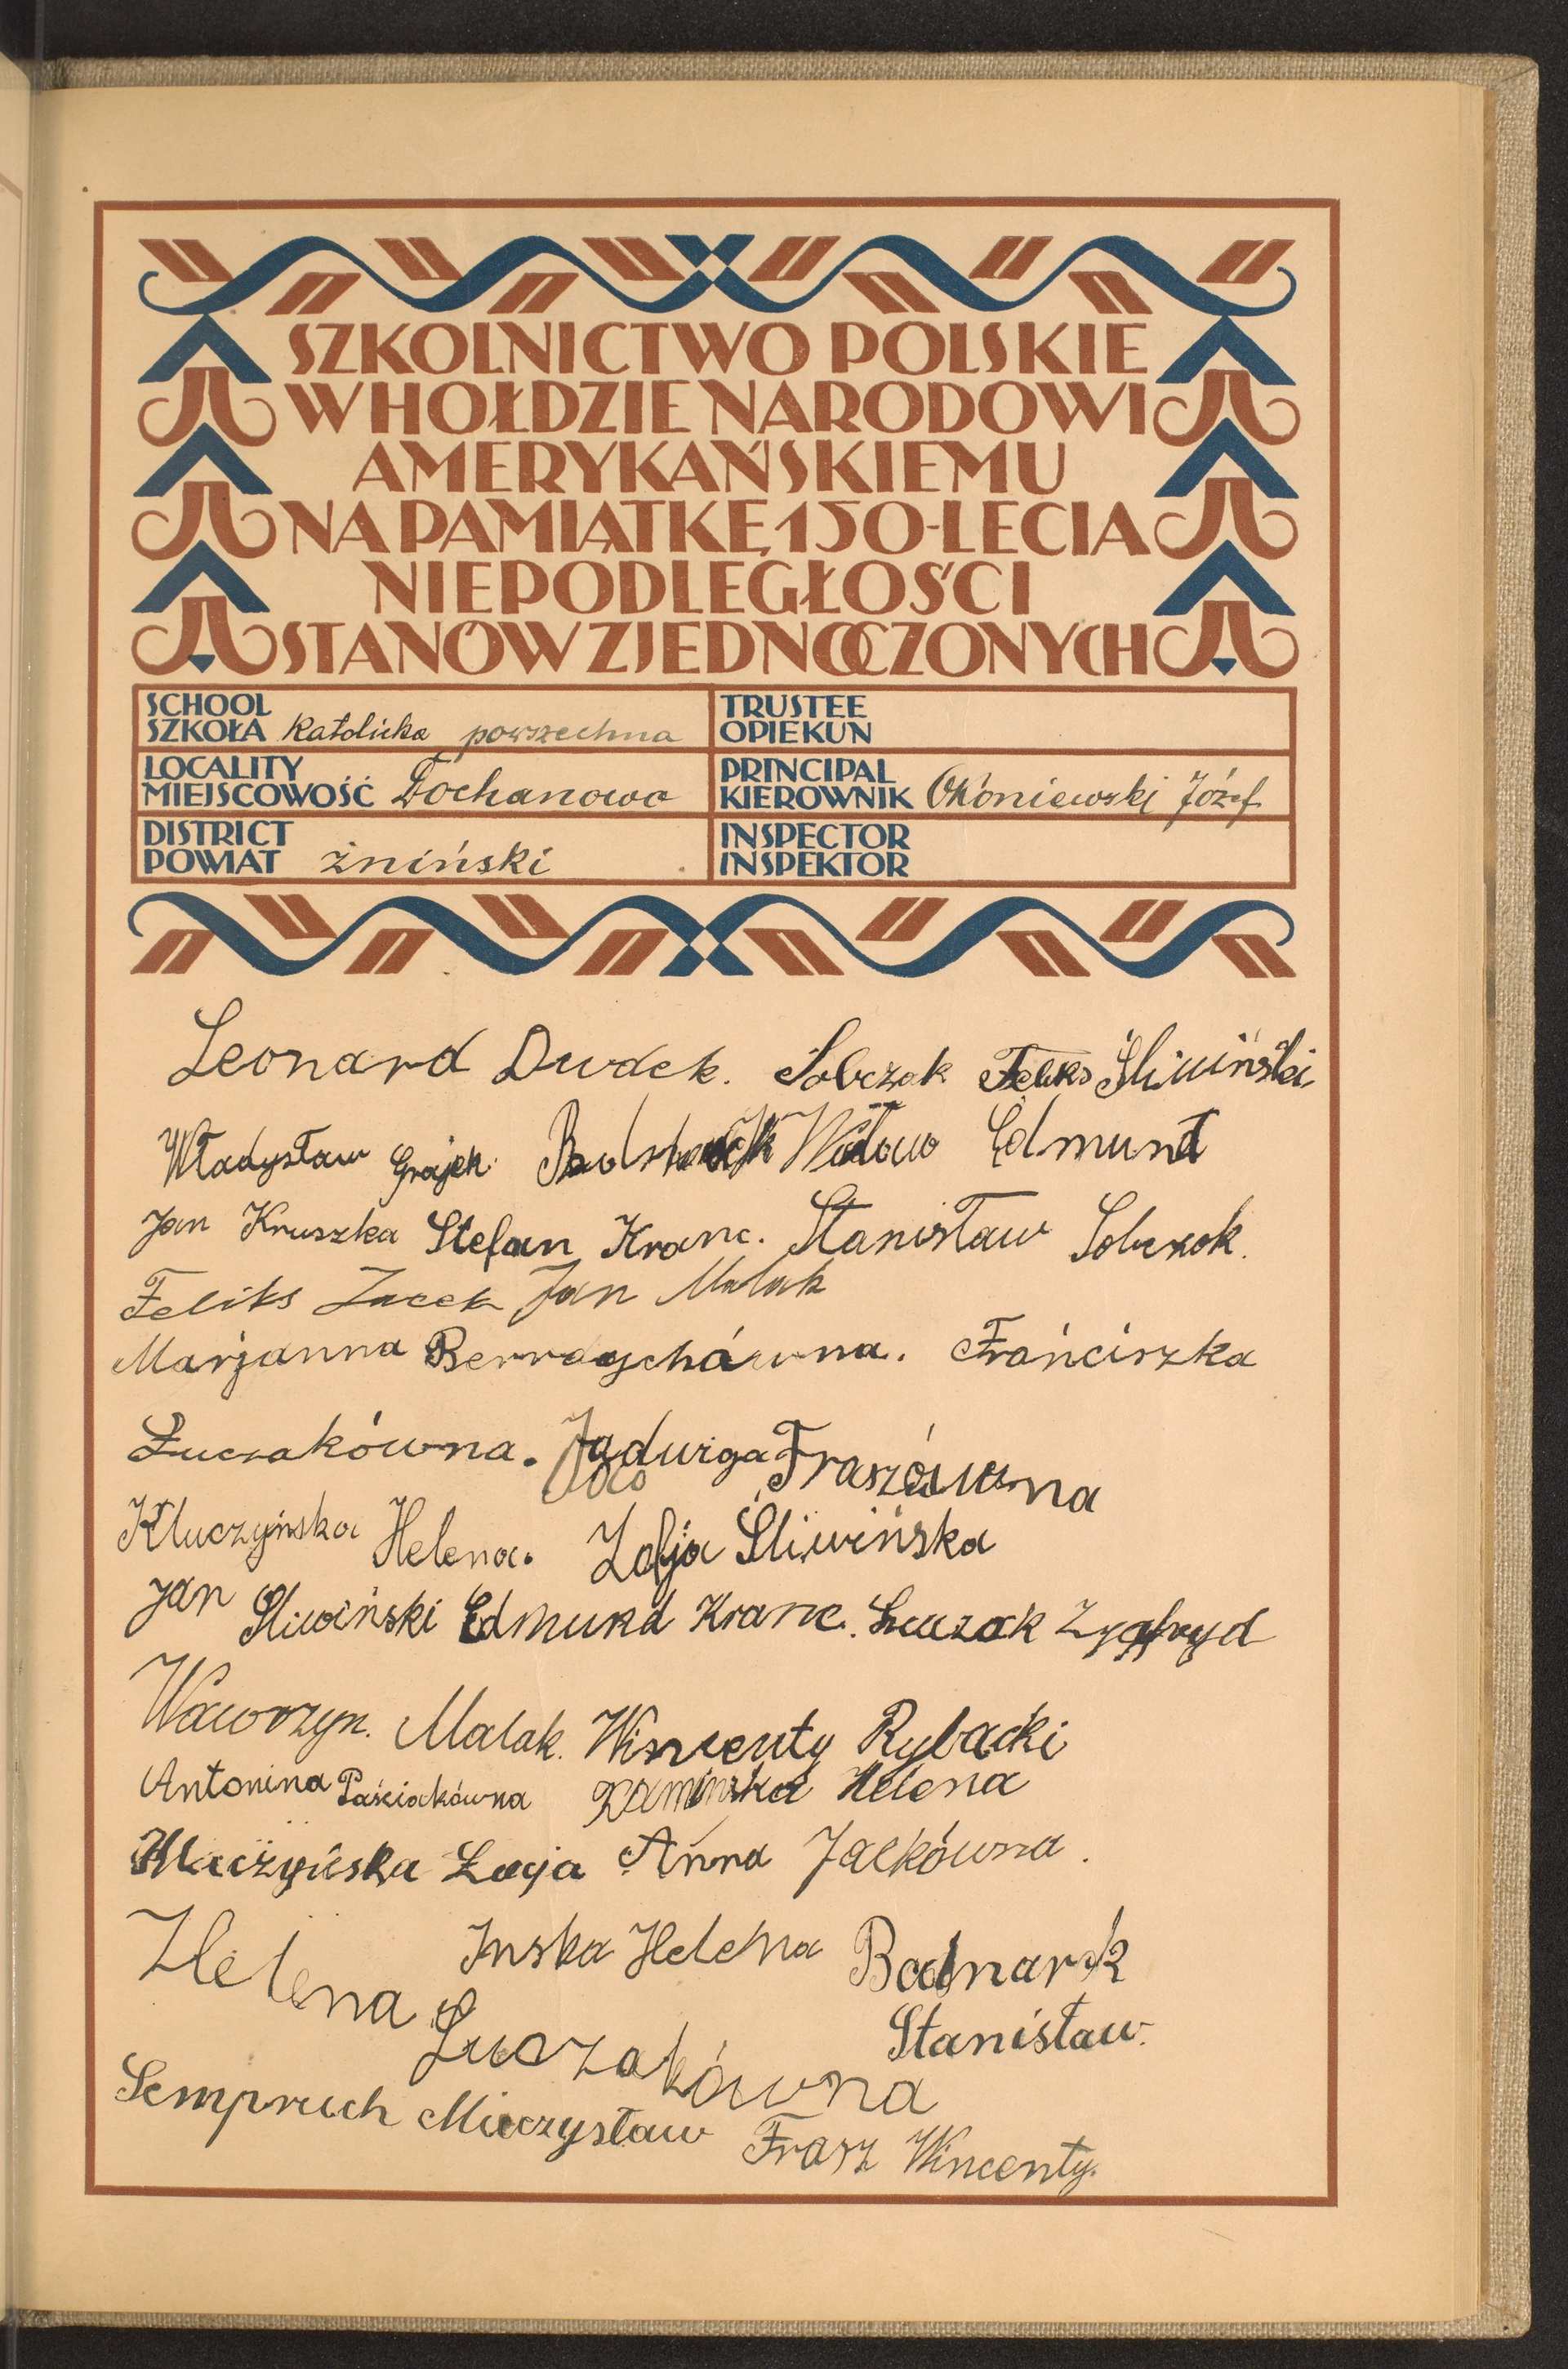 SZKOLNICTWO POLSKIE
W HOŁDZIE NARODOWI
AMERYKAŃSKIEMU
NA PAMIĄTKĘ 150-LECIA
NIEPODLEGŁOŚCI
STANÓW ZJEDNOCZONYCH
SCHOOL
SZKOŁA Katolicka powszechna
TRUSTEE
OPIEKUN
LOCALITY
MIEJSCOWOŚĆ Łochanowo
PRINCIPAL
KIEROWNIK Okóniewski Józef
DISTRICT
POWIAT żniński
INSPECTOR
INSPEKTOR
Leonard Dudek. Sobczak Feliks Śliwiński
Władysław Grajek. Edmund
Jan Kruszka Stefan Kranc. Stanisław Sobczak.
Feliks Jacek Jan Malak
Marjanna Franciszka
Łuczakówna. Jadwiga Fraszówna
Kluczyńska Helena. Zofja Śliwińska
Jan Śliwiński Edmund Kranc. Łuczak Zygfryd
Wawrzyn. Malak. Wincenty Rybacki
Antonina Paściakówna Kamińska Helena
Łucja Anna Jackówna.
Helena Łuczakówna
Inska Helena Bednarek
Stanisław.
Sempruch Mieczysław Frasz Wincenty.